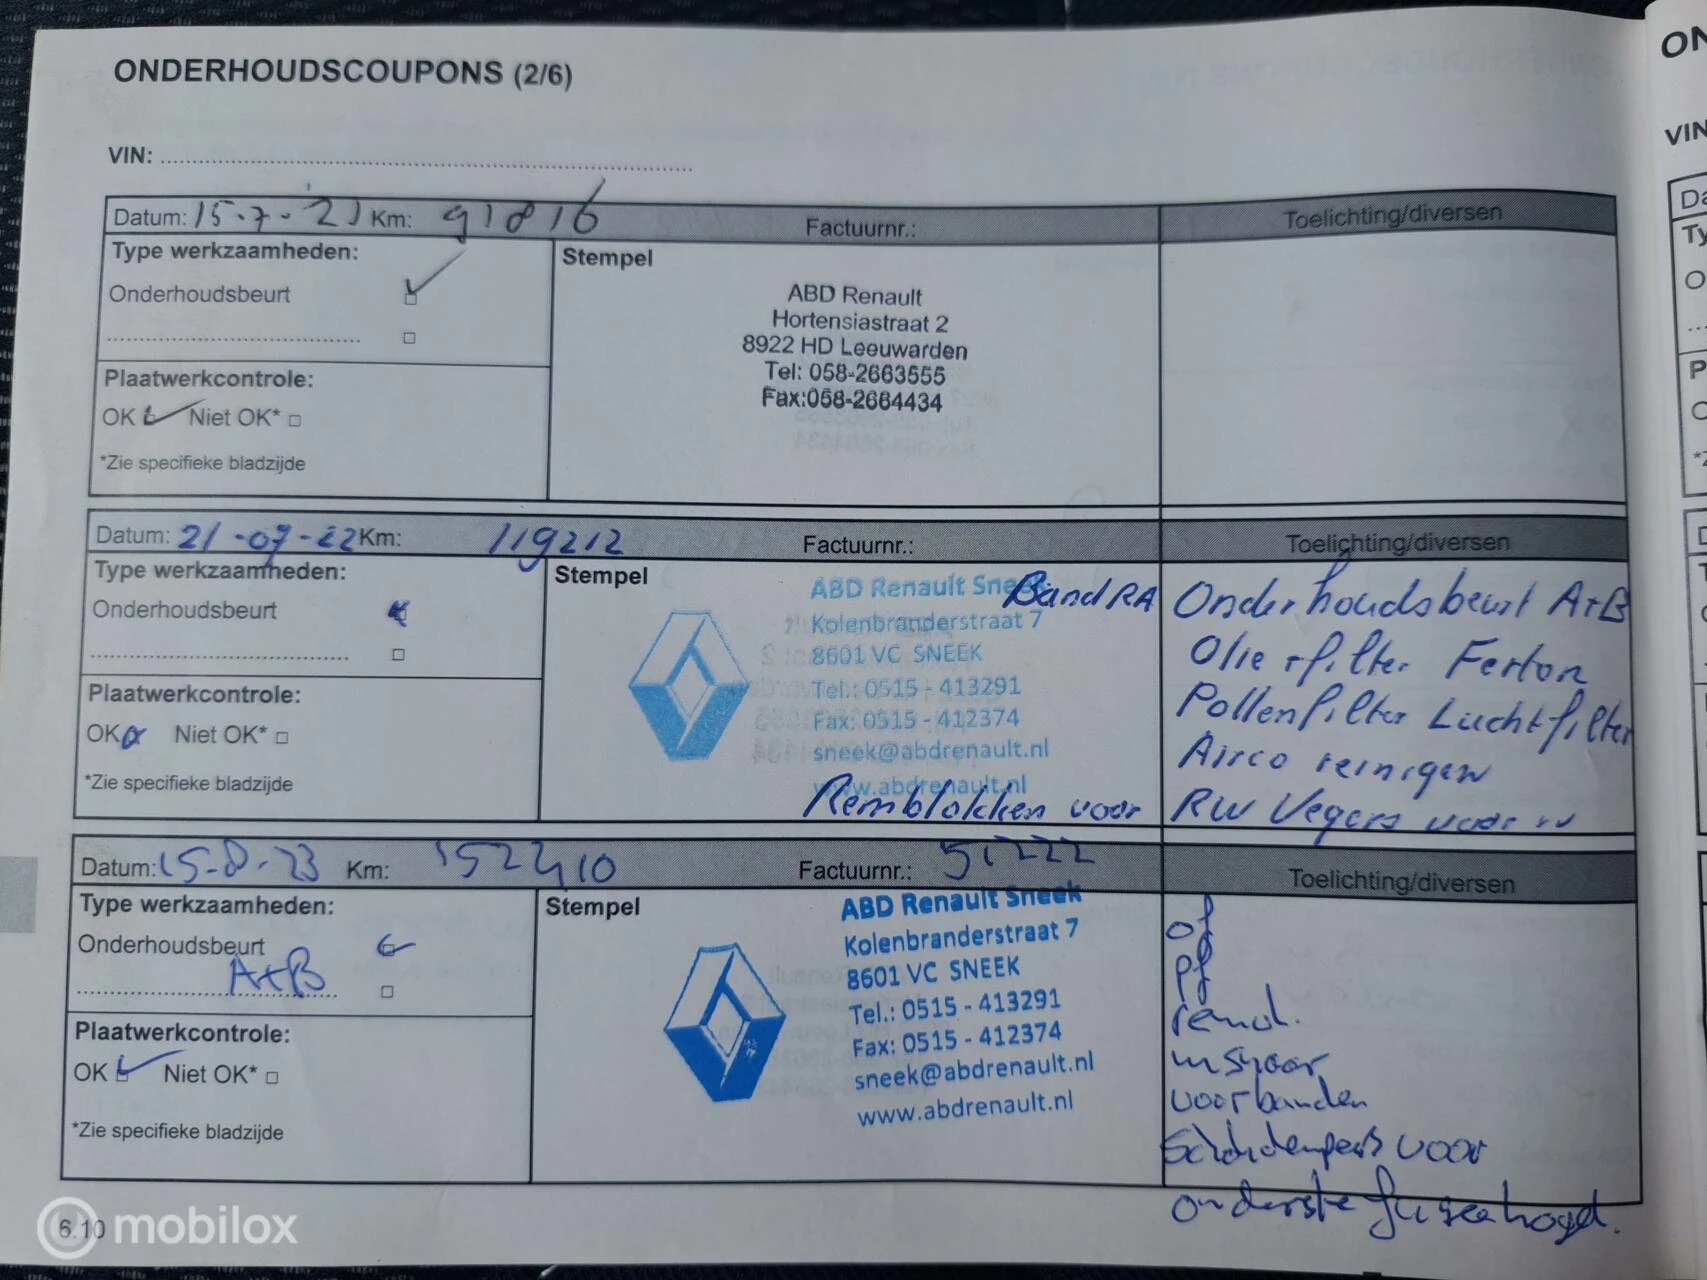 ONDERHOUDSCOUPONS (2/6)
VIN:
Datum: 15-7-'21 Km: 91816 Factuurnr.: Toelichting/diversen
Type werkzaamheden:
Onderhoudsbeurt
Plaatwerkcontrole:
OK Niet OK*
*Zie specifieke bladzijde
Stempel
ABD Renault
Hortensiastraat 2
8922 HD Leeuwarden
Tel: 058-2663555
Fax:058-2664434
Datum: 21-07-22 Km: 119212 Factuurnr.: Toelichting/diversen
Type werkzaamheden:
Onderhoudsbeurt
Plaatwerkcontrole:
OK Niet OK*
*Zie specifieke bladzijde
Stempel
ABD Renault Sneek
Band RA
Kolenbranderstraat 7
8601 VC SNEEK
Tel.: 0515 - 413291
Fax: 0515 - 412374
sneek@abdrenault.nl
www.abdrenault.nl
Remblokken voor
Onderhoudsbeurt A+B
Olie + filter
Pollenfilter Luchtfilter
Airco reinigen
RW
Datum: 15-8-23 Km: 152410 Factuurnr.: 51222 Toelichting/diversen
Type werkzaamheden:
Onderhoudsbeurt
A+B
Plaatwerkcontrole:
OK Niet OK*
*Zie specifieke bladzijde
Stempel
ABD Renault Sneek
Kolenbranderstraat 7
8601 VC SNEEK
Tel.: 0515 - 413291
Fax: 0515 - 412374
sneek@abdrenault.nl
www.abdrenault.nl
of
pf
voorbanden
voor
onderste
6.10
mobilox
ON
VIN